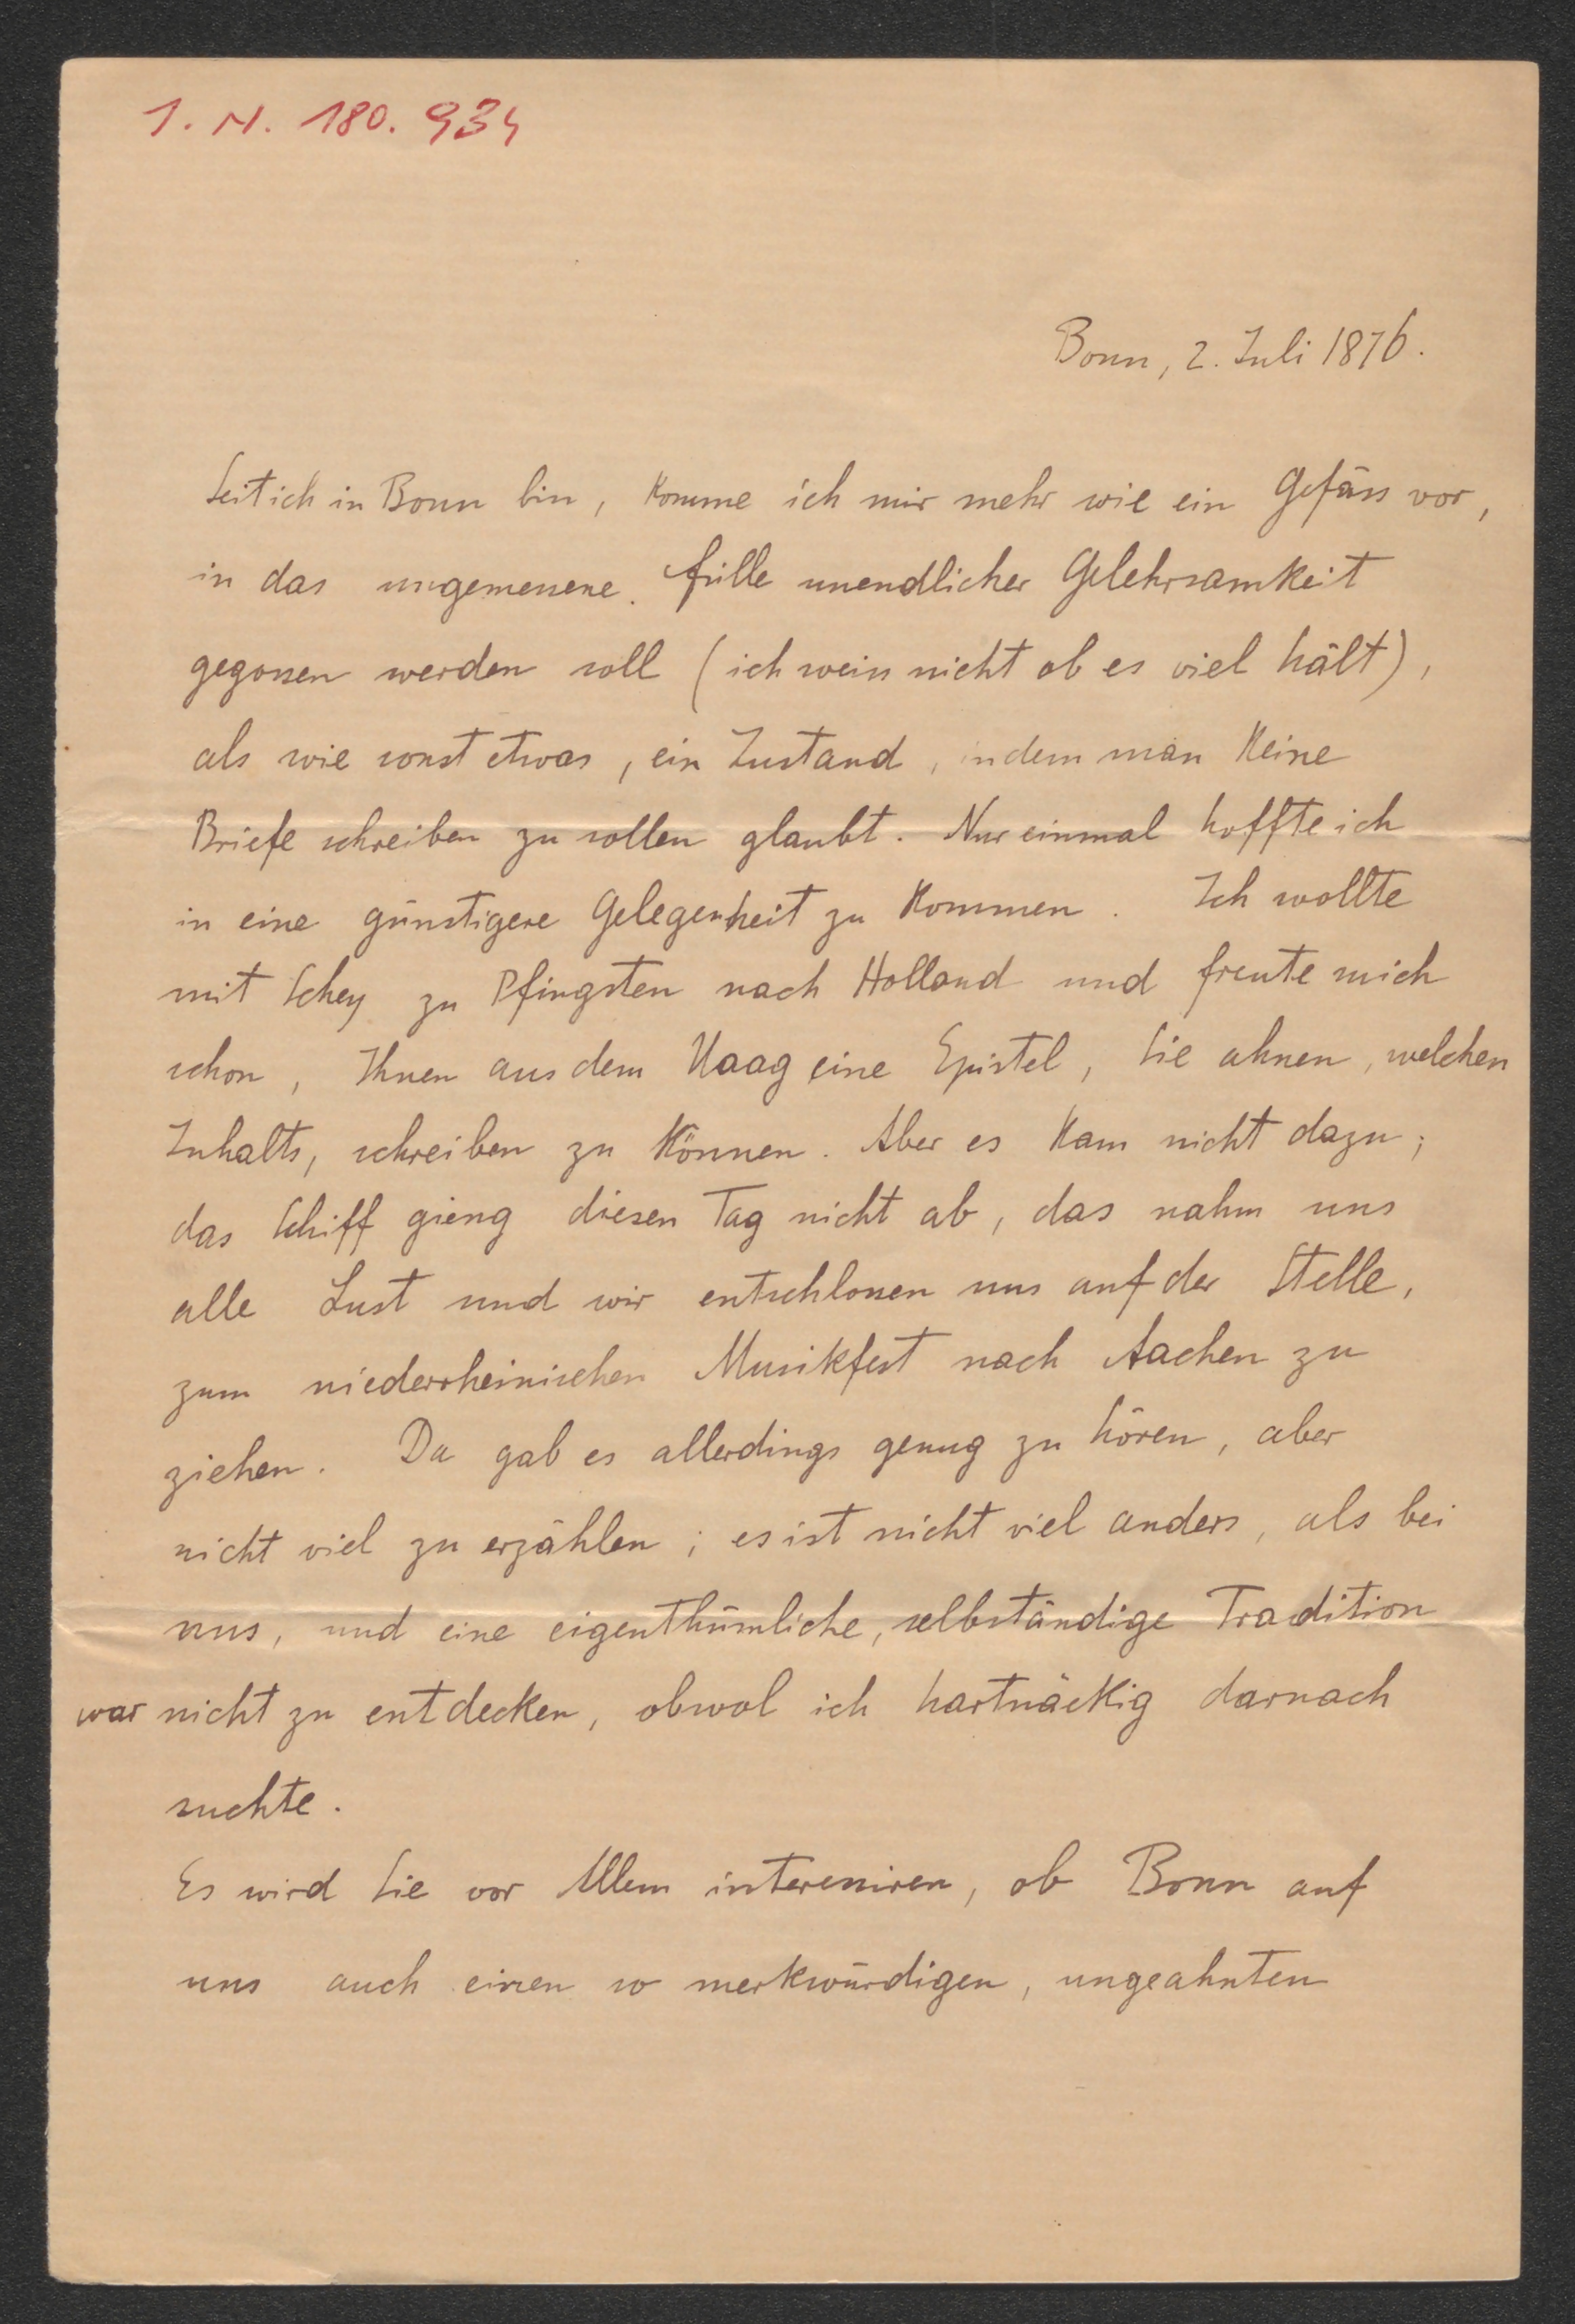 I. N. 180.934
Bonn, 2. Juli 1876.
Seit ich in Bonn bin, komme ich mir mehr wie ein Gefäss vor,
in das ungemessene Fülle unendlicher Gelehrsamkeit
gegossen werden soll (ich weiss nicht ob es viel hält),
als wie sonst etwas, ein Zustand, in dem man keine
Briefe schreiben zu sollen glaubt. Nur einmal hoffte ich
in eine günstigere Gelegenheit zu kommen. Ich wollte
mit Schey zu Pfingsten nach Holland und freute mich
schon, Ihnen aus dem Haag eine Epistel, Sie ahnen, welchen
Inhalts, schreiben zu können. Aber es kam nicht dazu;
das Schiff gieng diesen Tag nicht ab, das nahm uns
alle Lust und wir entschlossen uns auf der Stelle,
zum niederrheinischen Musikfest nach Aachen zu
ziehen. Da gab es allerdings genug zu hören, aber
nicht viel zu erzählen; es ist nicht viel anders, als bei
uns, und eine eigenthümliche, selbständige Tradition
war nicht zu entdecken, obwol ich hartnäckig darnach
suchte.
Es wird Sie vor Allem interessiren, ob Bonn auf
uns auch einen so merkwürdigen, ungeahnten